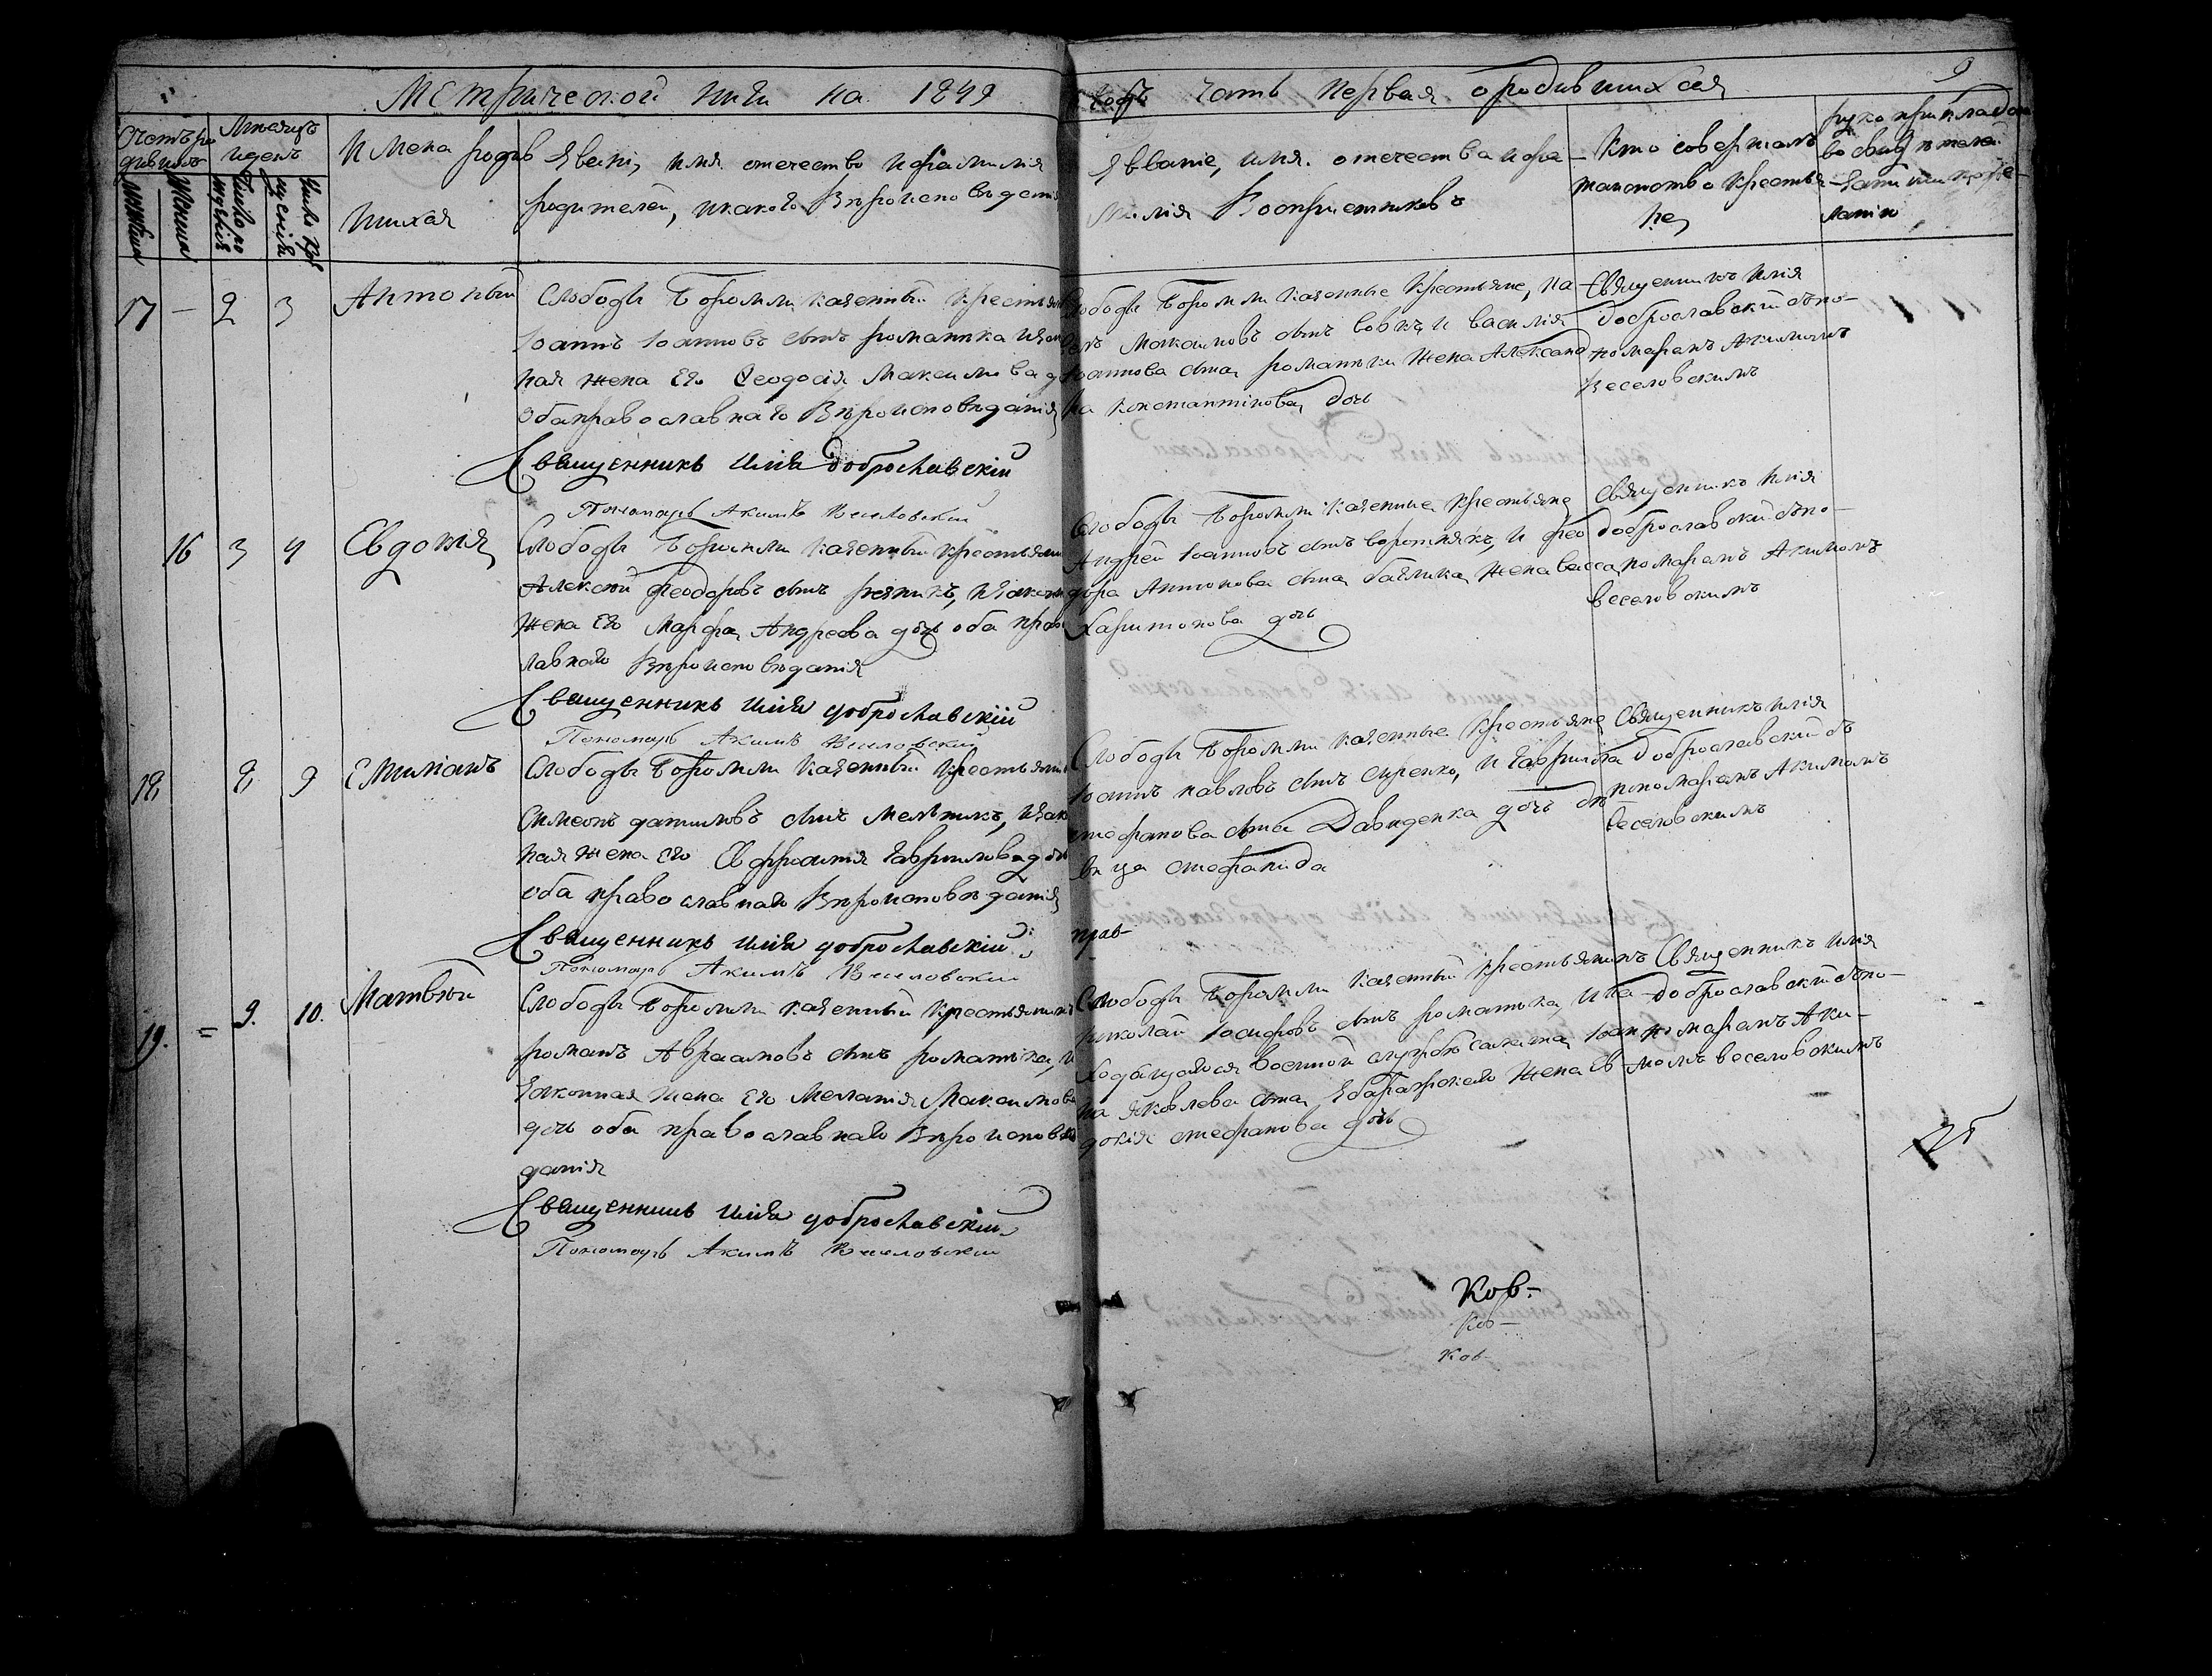 Метрической книги на 1849
годъ часть первая о родившихся
9
Счетъ ро
дивших
Мѣсяцъ
и день
Имена родив
шихся
Званіе, имя, отечество и фамилія
родителей, и какого Вѣроисповѣданія
Званіе, имя, отечества и фа-
милія Воспріемниковъ
Кто совершалъ
таинство Креще-
нія
рукоприкладс
во свидѣтелей
записи по же-
ланію
17 — 2 3 Антоній
Слободы Боромли казенный крестьянин
Іоаннъ Іоанновъ сынъ романика и закон
ная жена его Феодосія Максимова до
оба православнаго Вѣроисповѣданія
Священникъ Илія Доброславскій
Пономарь Акимъ Веселовскій
Слободы Боромли казенные крестьяне, Па-
велъ Максимовъ сынъ вовкъ, и василія
Іоаннова сына романики жена Александ
ра Константинова дочь
Священникъ Илія
Доброславскій съ по-
номаремъ Акимомъ
Веселовскимъ
16 3 4 Евдокія
Слободы Боромли казенный крестьянин
Алексѣй феодоровъ сынъ резникъ, и закон
жена его Марфа Андреева дочь оба право
лавнаго Вѣроисповѣданія
Священникъ Илія Доброславскій
Пономарь Акимъ Веселовскій
Слободы Боромли казенные крестьяне
Андрей Іоанновъ сынъ воротнякъ, и фео
дора Антонова сына жена васса
Харитонова дочь
Священникъ Илія
доброславскій съ по-
номаремъ Акимомъ
веселовскимъ
18 8 9 Емиліанъ
Слободы Боромли казенный крестьянин
Симеонъ даниловъ сынъ Мельникъ, и закон
ная жена его Евфросинія Гавриилова дочь
оба православнаго Вѣроисповѣданія
Священникъ Илія Доброславскій
Пономарь Акимъ Веселовскій
Слободы Боромли казенные крестьяне
Іоаннъ павловъ сынъ Сиренко, и Гавріила
стефанова сына Давиденка дочь дѣ
вица стефанида
Священникъ Илія
Доброславскій съ
пономаремъ Акимомъ
Веселовскимъ
прав-
19. = 9. 10. Матвѣй
Слободы Боромли казенный крестьянинъ
романъ Авраамовъ сынъ романика, и
законная жена его Меланія Максимова
дочь оба православнаго Вѣроисповѣ
данія
Священникъ Илія Доброславскій
Пономарь Акимъ Веселовскій
Слободы Боромли казенный крестьянинъ
николай Іосифовъ сынъ романика, и на-
ходящагося военной службѣ салдата Іоан
на яковлева сына Збаражскаго жена Ев
докія стефанова дочь
Священникъ Илія
Доброславскій съ по-
номаремъ Аки-
момъ веселовскимъ
Ков-
Ков-
Ков-